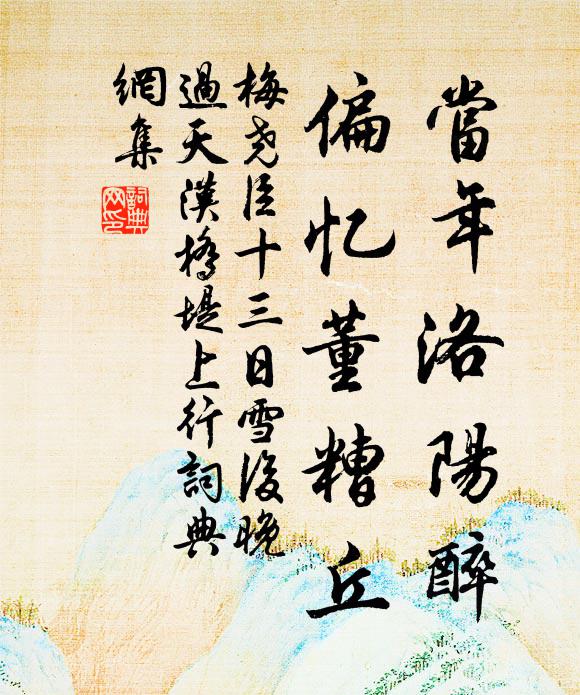 當年洛陽醉
偏忆董糟丘
梅尧臣十三日雪後晚
過天漢橋堤上行詞典
網集
詞典網印